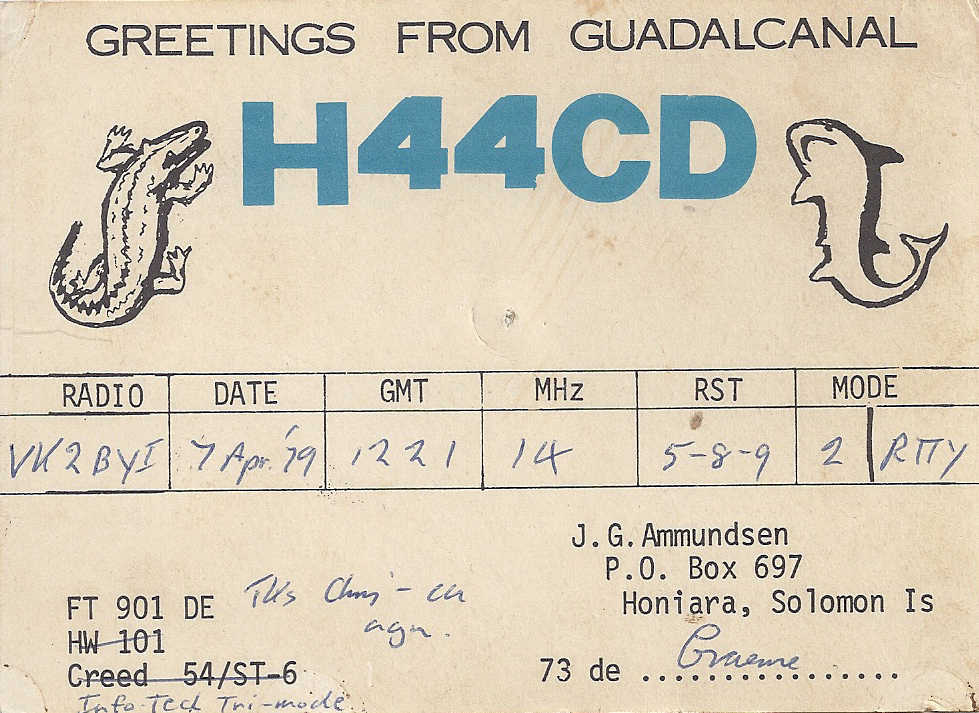 GREETINGS FROM GUADALCANAL
H44CD
RADIO DATE GMT MHz RST MODE
VK2BYI 7 Apr. '79 1221 14 5-8-9 2 RTTY
J.G. Ammundsen
P.O. Box 697
Honiara, Solomon Is
FT 901 DE Tks Chris - cu
agn.
HW 101
Creed 54/ST-6
Info-Tech Tri-mode
73 de Graeme